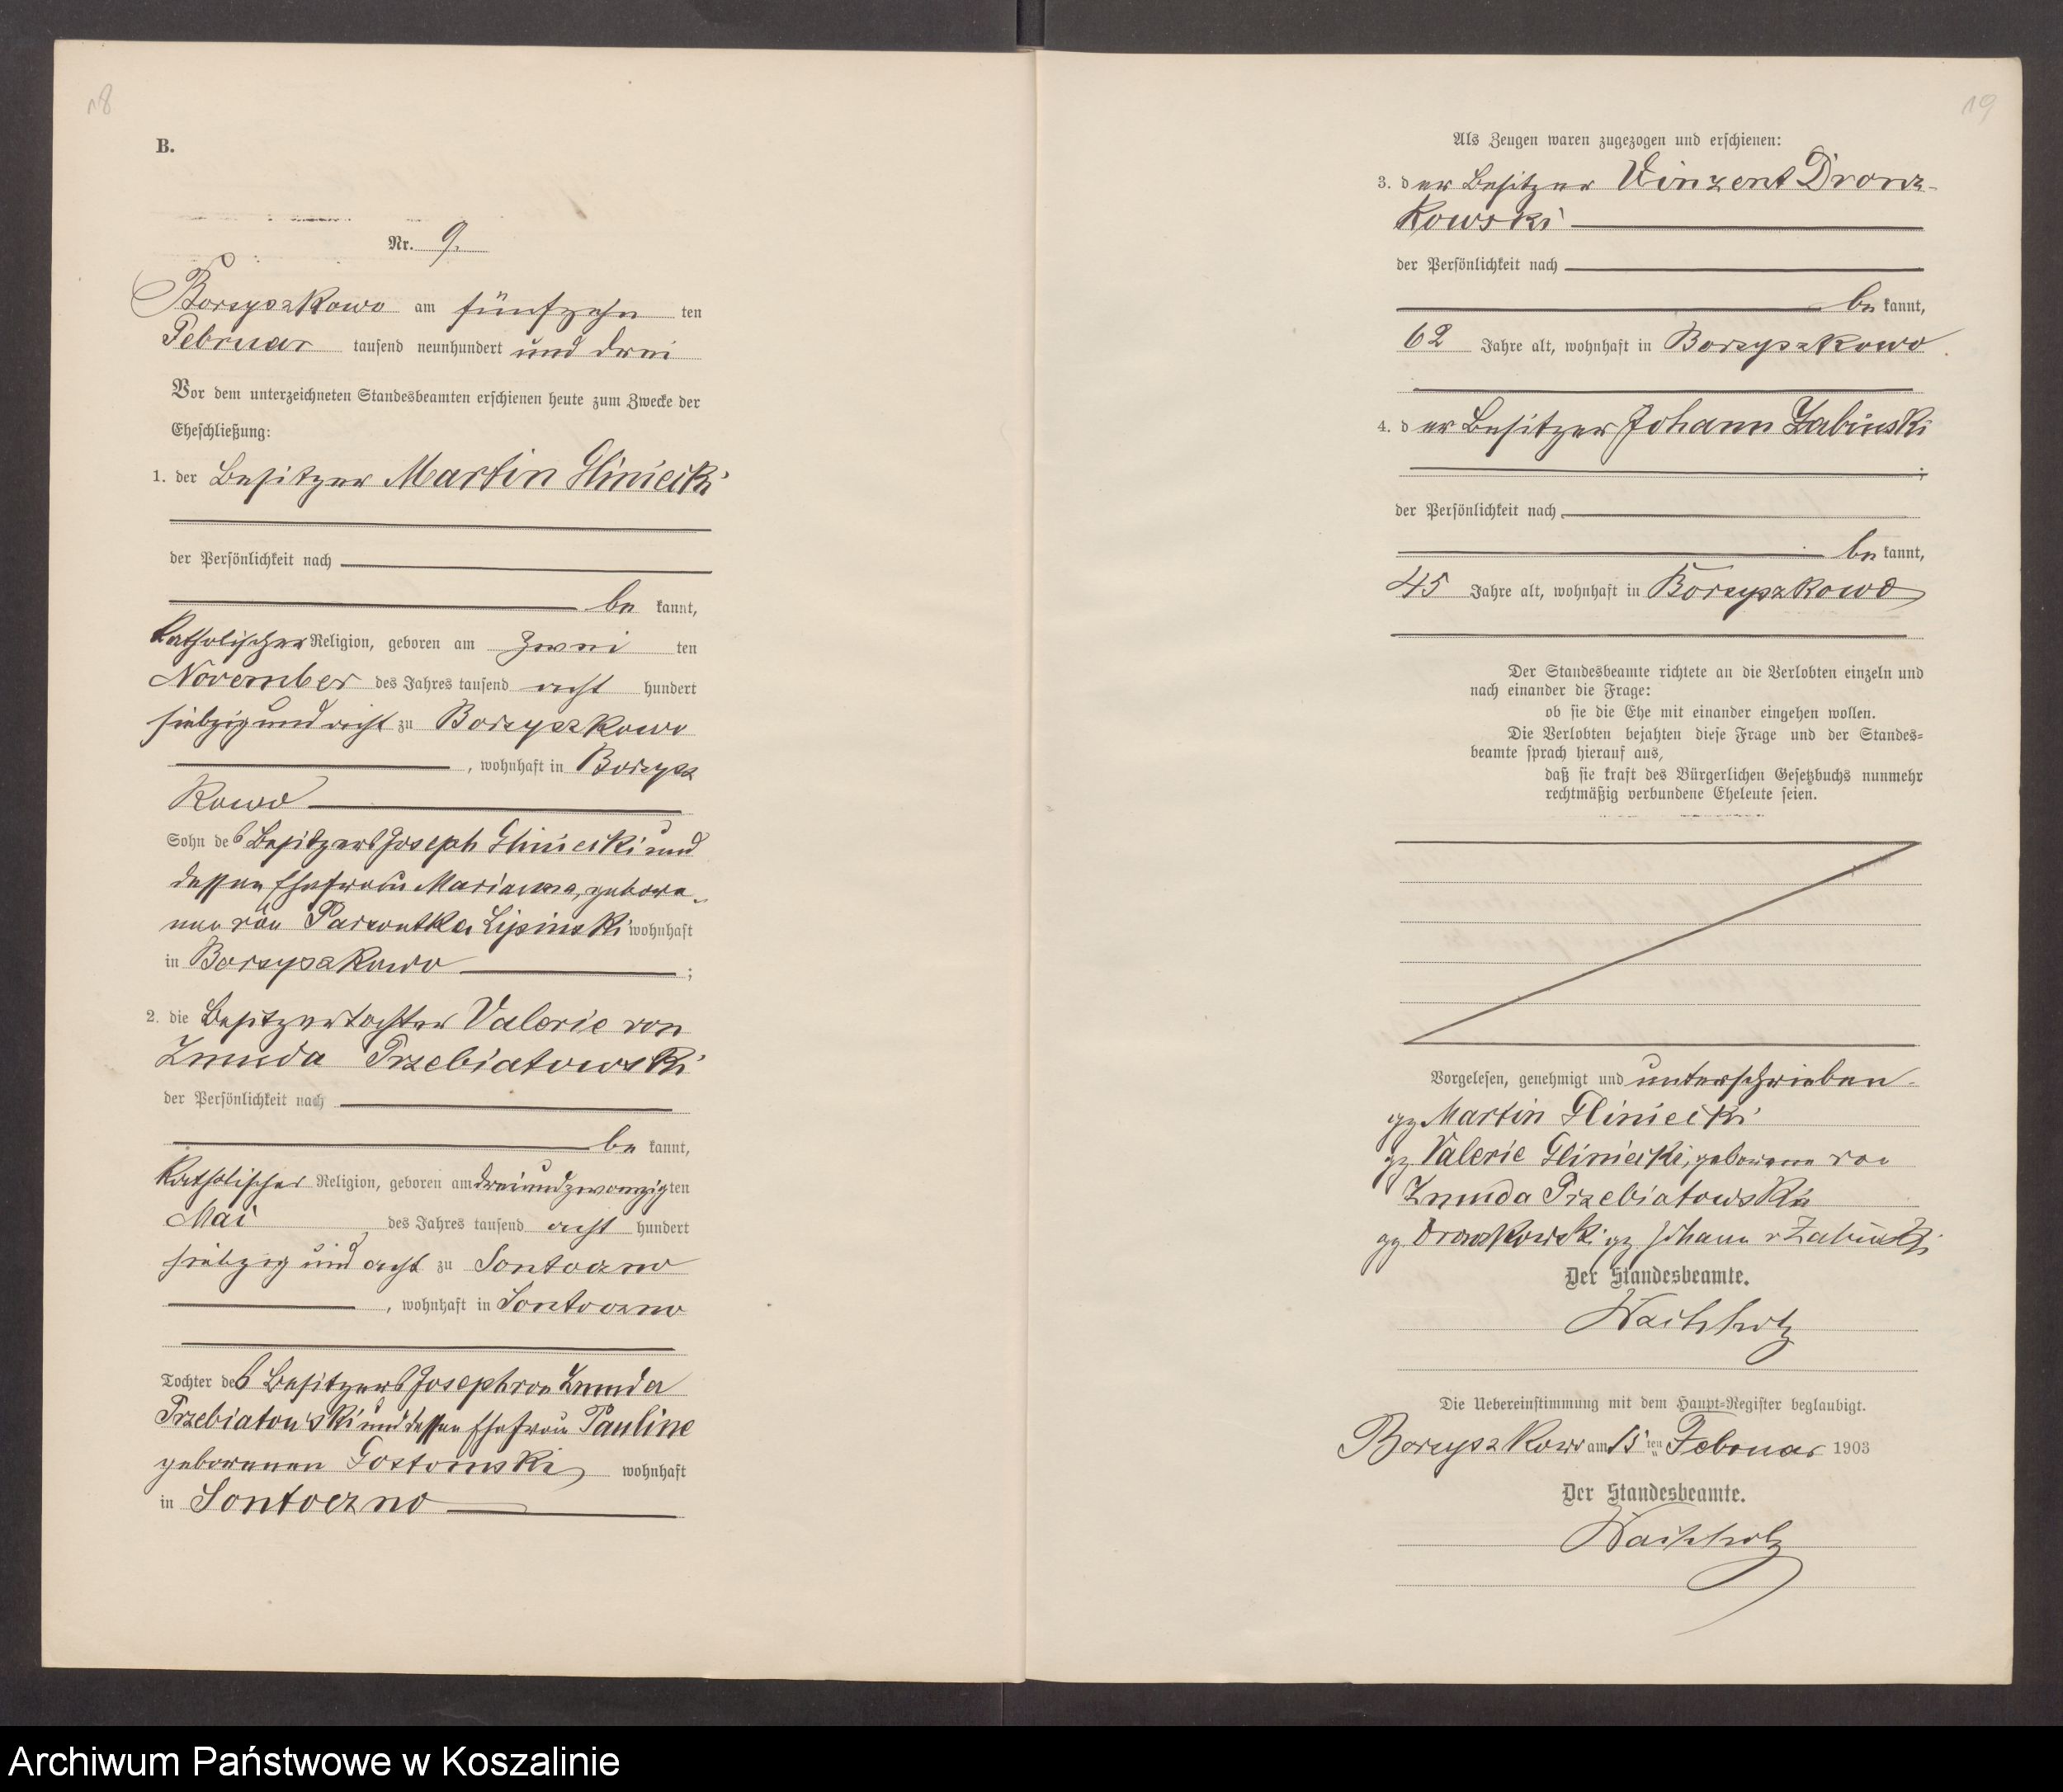 18
B.
Nr. 9.
Borzyszkowo am fünfzehn ten
Februar tausend neunhundert und drei
Vor dem unterzeichneten Standesbeamten erschienen heute zum Zwecke der
Eheschließung:
1. der Besitzer Martin Gliniecki
der Persönlichkeit nach
be kannt,
katholischer Religion, geboren am zwei ten
November des Jahres tausend acht hundert
siebzig und acht zu Borzyszkowo
, wohnhaft in Borzysz
kowo
Sohn des Besitzers Joseph Gliniecki und
dessen Ehefrau Marianna, gebore-
nen von Lipinski wohnhaft
in Borzyszkowo ;
2. die Besitzertochter Valerie von
Zmuda Trzebiatowski
der Persönlichkeit nach
be kannt,
katholischer Religion, geboren am dreiundzwanzig ten
Mai des Jahres tausend acht hundert
siebzig und acht zu Sontoczno
, wohnhaft in Sontoczno
Tochter des Besitzers Joseph von Zmuda
Trzebiatowski und dessen Ehefrau Pauline
geborenen Gostomski wohnhaft
in Sontoczno
19
Als Zeugen waren zugezogen und erschienen:
3. der Besitzer Vinzent Dronz-
kowski
der Persönlichkeit nach
be kannt,
62 Jahre alt, wohnhaft in Borzyszkowo
4. der Besitzer Johann Zabinski
;
der Persönlichkeit nach
be kannt,
45 Jahre alt, wohnhaft in Borzyszkowo
Der Standesbeamte richtete an die Verlobten einzeln und
nach einander die Frage:
ob sie die Ehe mit einander eingehen wollen.
Die Verlobten bejahten diese Frage und der Standes-
beamte sprach hierauf aus,
daß sie kraft des Bürgerlichen Gesetzbuchs nunmehr
rechtmäßig verbundene Eheleute seien.
Vorgelesen, genehmigt und unterschrieben
gz Martin Gliniecki
gz Valerie Gliniecki, geborene von
Zmuda Trzebiatowski
gz Dronzkowski gz Johann v Zabinski
Der Standesbeamte.
Wachholz
Die Uebereinstimmung mit dem Haupt-Register beglaubigt.
Borzyszkowo am 15 ten Februar 1903
Der Standesbeamte.
Wachholz
Archiwum Państwowe w Koszalinie